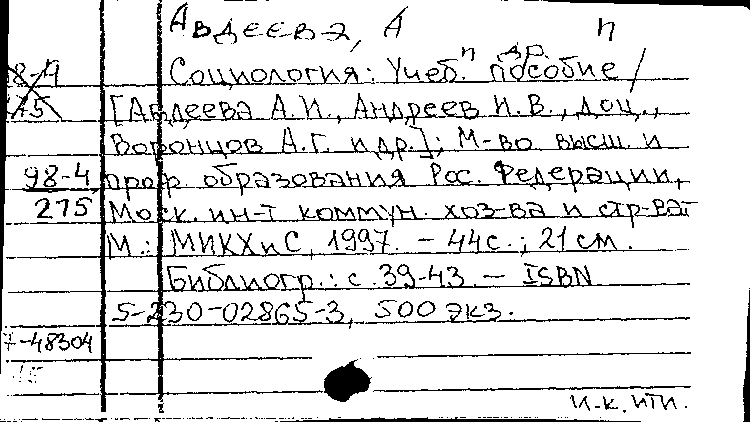 Авдеева, А п
8-9 Социология: Учеб. пособие /
75 [Авдеева А.И., Андреев И.В., доц.,
Воронцов А.Г. и др.]; М-во высш. и
98-4 проф. образования Рос. Федерации,
275 Моск. ин-т коммун. хоз-ва и стр-ва.
М.: МИКХиС, 1997. - 44с.; 21 см.
Библиогр.: с. 39-43. - ISBN
5-230-02865-3, 500 экз.
7-48304
И-к. ИТИ.